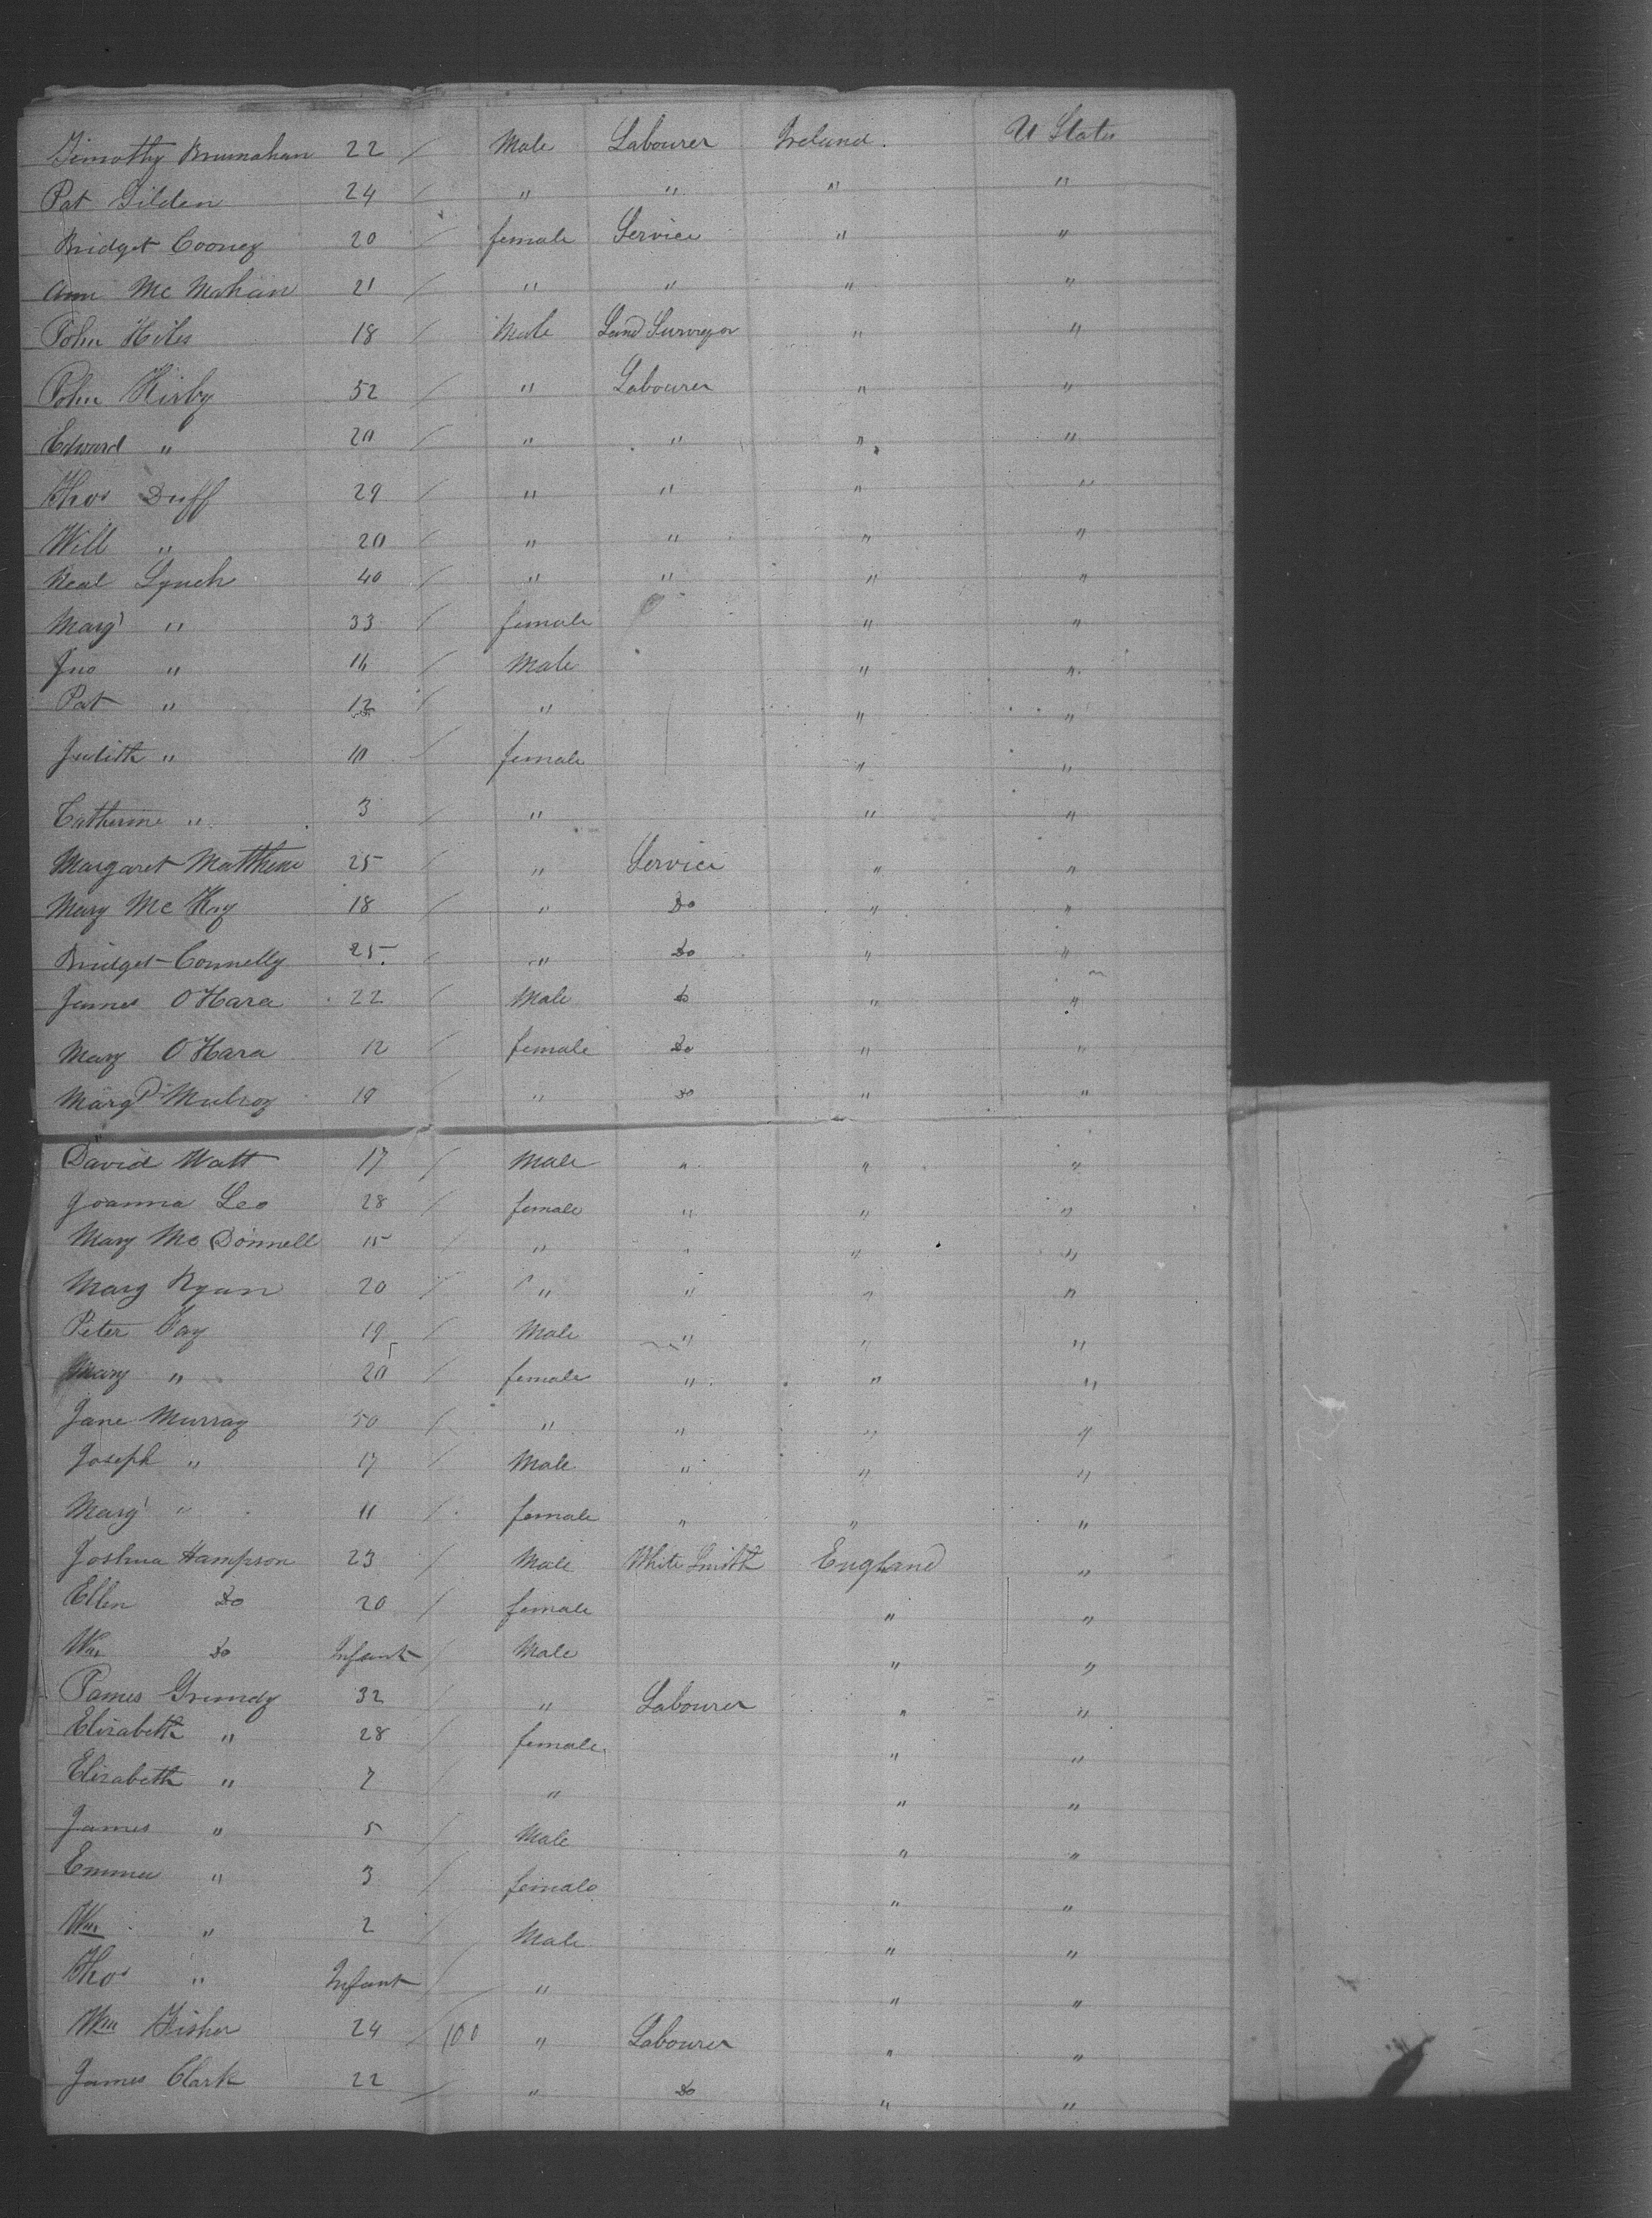 Timothy Brunahan 22 / Male Labourer Ireland. U States
Pat Gilden 24 / " " " "
Bridget Cooney 20 / female Service " "
Ann Mc Mahan 21 / " " " "
John Hiles 18 / Male Land Surveyor " "
John Kirby 52 / " Labourer " "
Edward " 20 / " " " "
Thos Duff 29 / " " " "
Will " 20 / " " " "
Neal Lynch 40 / " " " "
Margt " 33 / female " "
Jno " 16 / Male " "
Pat " 12 / " " "
Judith " 10 / female " "
Catherine " 3 / " " "
Margaret Matthew 25 / " Service " "
Mary Mc Kay 18 / " Do " "
Bridget Connelly 25 / " Do " "
James O'Hara 22 / Male do " "
Mary O'Hara 12 / female Do " "
Margt Mulroy 18 / " Do " "
David Watt 17 / Male " " "
Joanna Leo 28 / female " " "
Mary Mc Donnell 15 / " " " "
Mary Ryan 20 / " " " "
Peter Fay 19 / Male " " "
Mary " 20 / female " " "
Jane Murray 50 / " " " "
Joseph " 17 / Male " " "
Margt " 11 / female " " "
Joshua Hampson 23 / Male White Smith England "
Ellen Do 20 / female " "
Wm Do Infant / Male " "
James Grundy 32 / " Labourer " "
Elizabeth " 28 / female " "
Elizabeth " 7 " " "
James " 5 / Male " "
Emma " 3 / female " "
Wm " 2 / Male " "
Thos " Infant / " " "
Wm Fisher 24 / 100 " Labourer " "
James Clark 22 / " Do " "